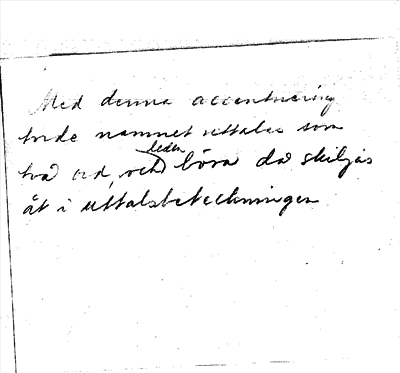 Med denna accentuering
torde namnet uttalas som
två ord, och leden böra då skiljas
åt i uttalsbeteckningen